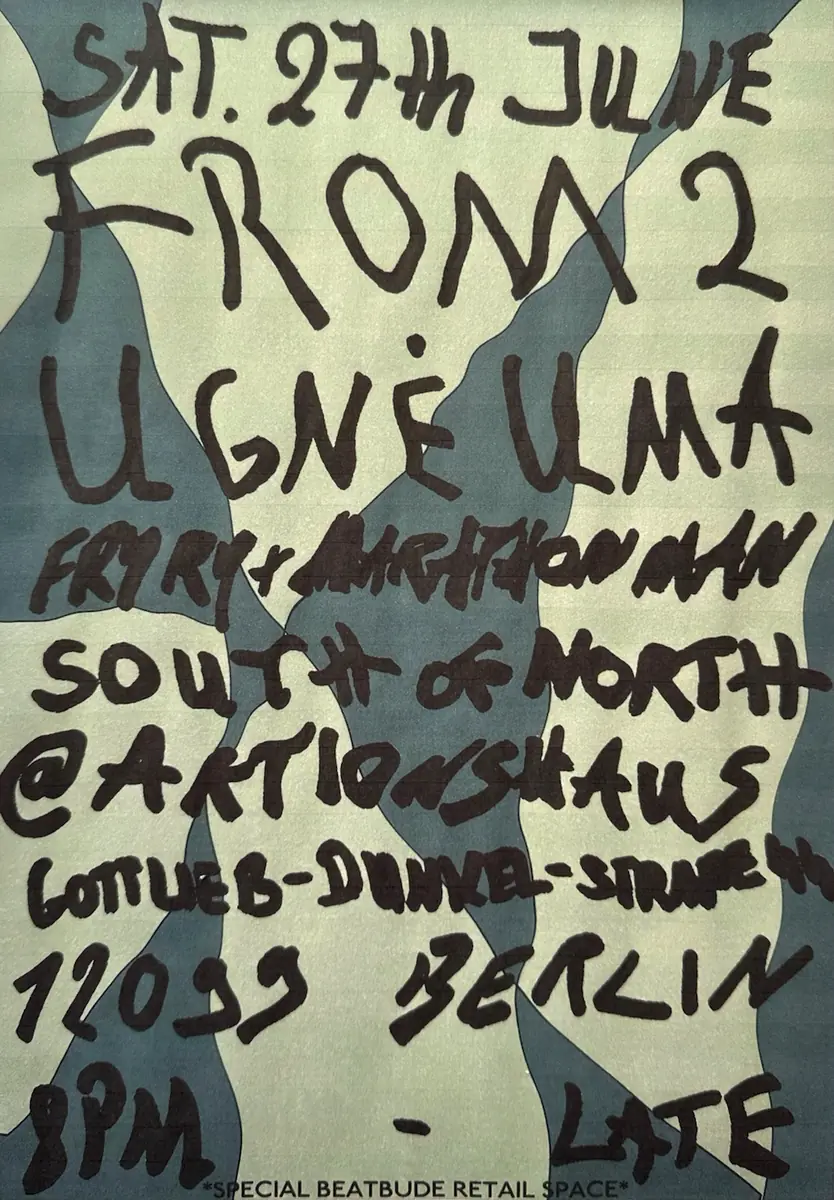 SAT. 27th JUNE
FROM 2
UGNĖ UMA
FRY RY + MARATHON MAN
SOUTH OF NORTH
@ AKTIONSHAUS
GOTTLIEB-DUNKEL-STRAßE 44
12099 BERLIN
8PM - LATE
*SPECIAL BEATBUDE RETAIL SPACE*